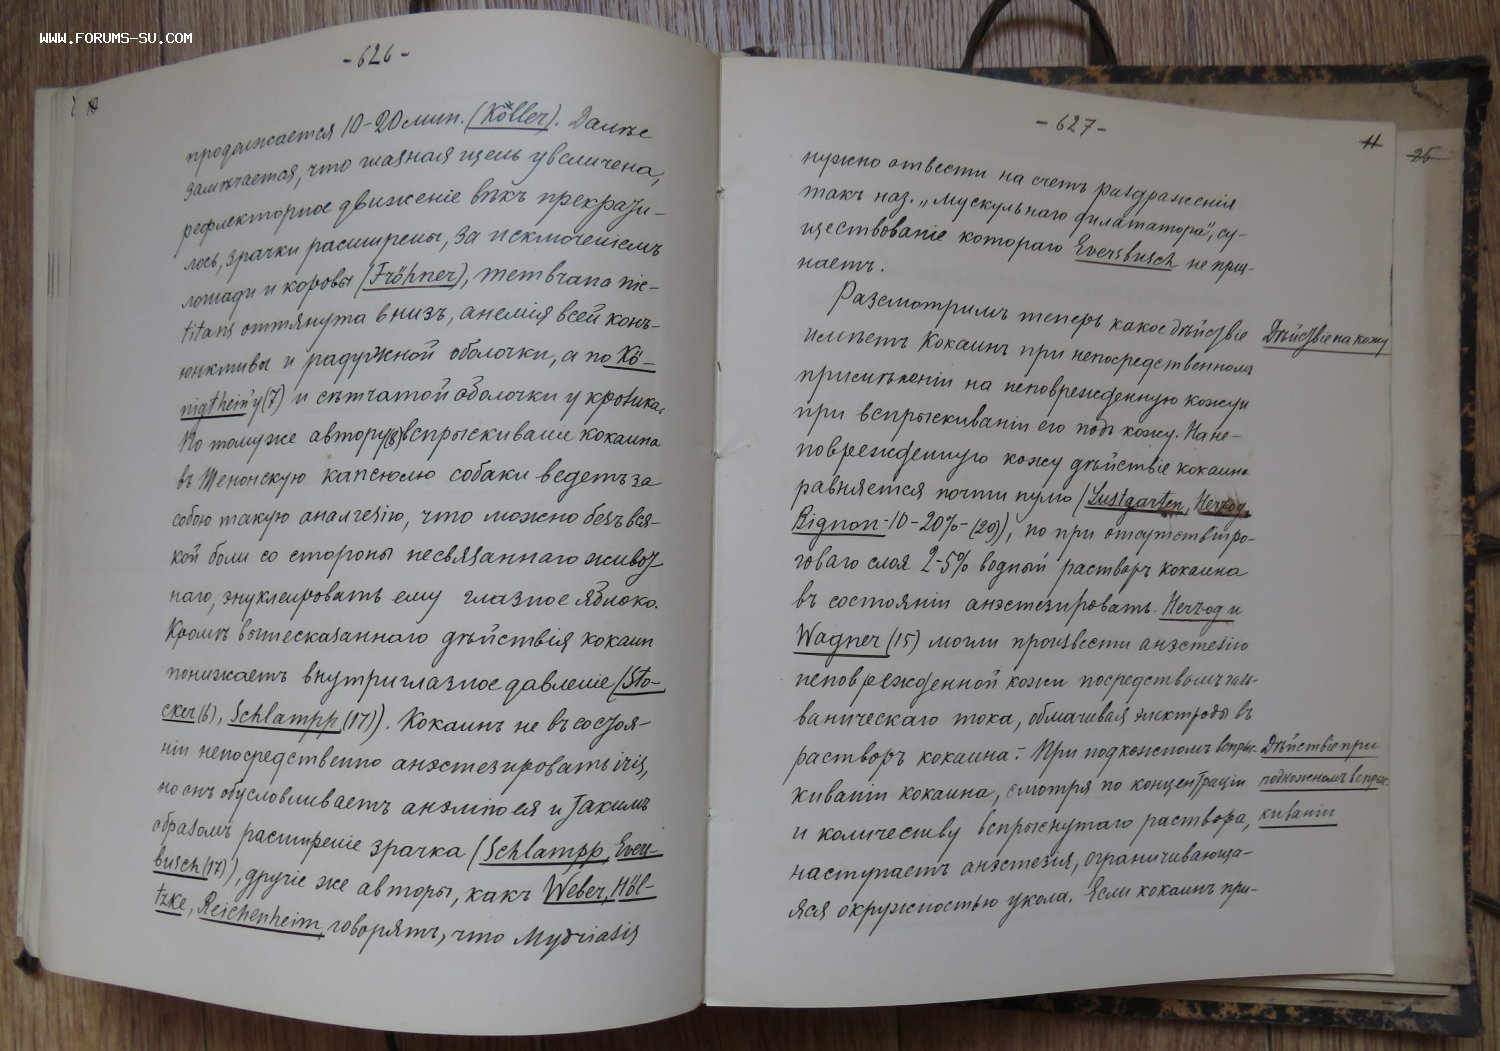 WWW.FORUMS-SU.COM
-626-
продолжается 10-20 мин. (Köller). Далѣе
замѣчается, что глазная щель увеличена,
рефлекторное движеніе вѣкъ прекрати-
лось, зрачки расширены, за исключеніемъ
лошади и коровы (Fröhner), membrana nic-
titans оттянута внизъ, анемія всей конъ-
юнктивы и радужной оболочки, а по Kö-
nigstein'у (7) и сѣтчатой оболочки у кролика.
По тому же автору (8) вспрыскиваніе кокаина
въ Тенонскую капсюлю собаки ведетъ за
собою такую аналгезію, что можно безъ вся-
кой боли со стороны несвязаннаго живот
наго, энуклеировать ему глазное яблоко.
Кромѣ вышесказаннаго дѣйствія кокаин
понижаетъ внутриглазное давленіе (Sto-
cker (6), Schlampp (17)). Кокаинъ не въ состоя-
ніи непосредственно анэстезировать iris,
но онъ обусловливаетъ анэмію ея и такимъ
образомъ расширеніе зрачка (Schlampp, Evers-
busch (17)), другіе же авторы, какъ Weber, Höl-
tzke, Reichenheim, говорятъ, что Mydriasis
-627-
11
25
нужно отвести на счетъ раздраженія
такъ наз. „мускульнаго дилататора", су-
ществованіе котораго Eversbusch не приз-
наетъ.
Разсмотримъ теперь какое дѣйствіе
имѣетъ Кокаинъ при непосредственномъ
примѣненіи на неповрежденную кожу и
при вспрыскиваніи его подъ кожу. На не-
поврежденную кожу дѣйствіе кокаина
равняется почти нулю (Lustgarten, Herzog,
Pignon-10-20%-(20)), но при отсутствіи ро-
говаго слоя 2-5% водный растворъ кокаина
въ состояніи анэстезировать. Herzog и
Wagner (15) могли произвести анэстезію
неповрежденной кожи посредствомъ галь-
ваническаго тока, обмачивая электроды въ
растворъ кокаина. - При подкожномъ вспрыс-
киваніи кокаина, смотря по концентраціи
и количеству вспрыснутаго раствора,
наступаетъ анэстезія, ограничивающа-
яся окружностью укола. Если кокаинъ при-
Дѣйствіе на кожу
Дѣйствіе при
подкожномъ вспрыс-
киваніи